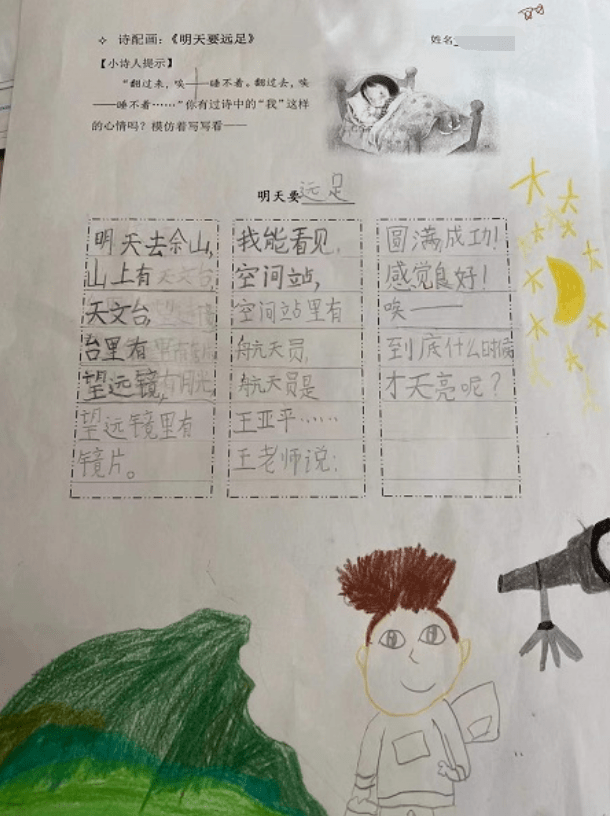 ✧ 诗配画：《明天要远足》
姓名
【小诗人提示】
“翻过来，唉——睡不着。翻过去，唉
——睡不着……”你有过诗中的“我”这样
的心情吗？模仿着写写看——
明天要远足
明天去佘山,
山上有天文台,
天文台,
台里有
望远镜,
望远镜里有
镜片。
我能看见,
空间站,
空间站里有
航天员,
航天员是
王亚平……
王老师说:
圆满成功!
感觉良好!
唉——
到底什么时候
才天亮呢?